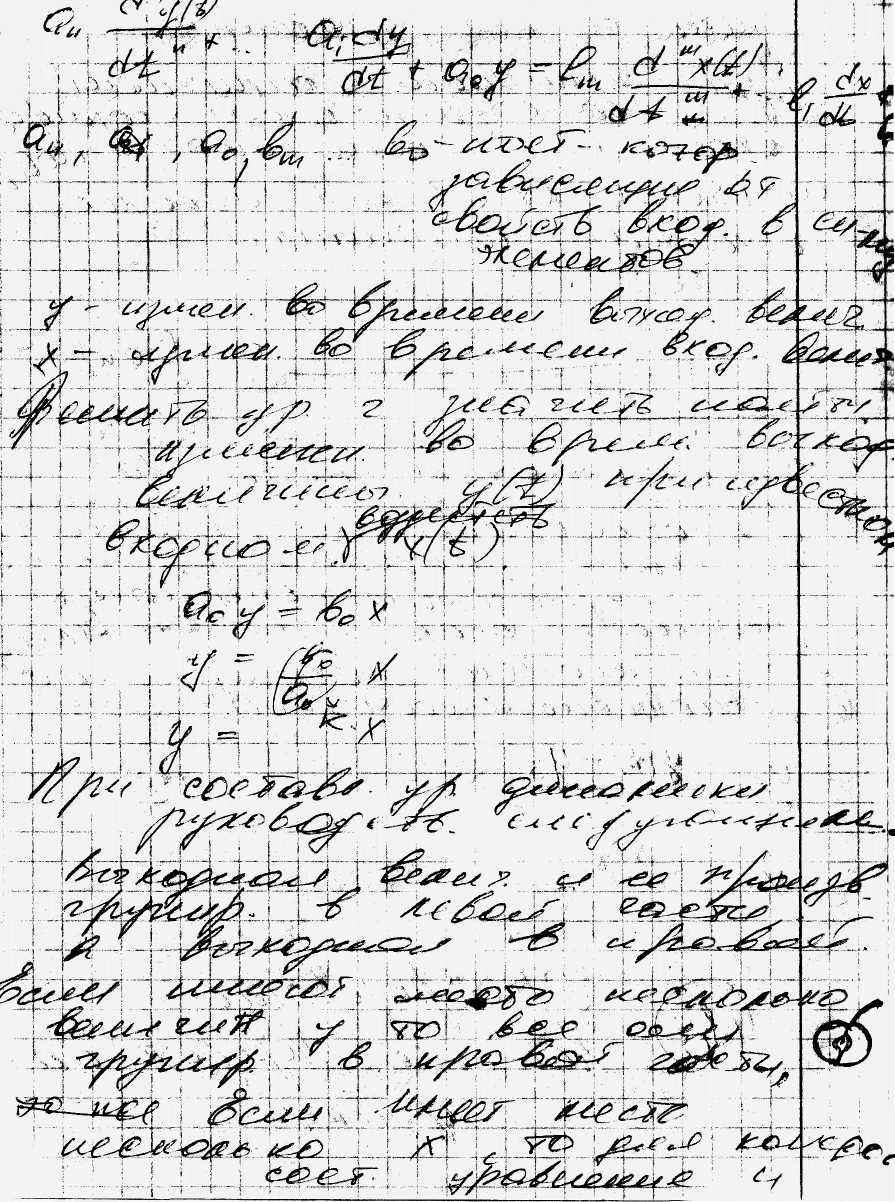 aₙ dⁿy(t)/dtⁿ + ... a₁dy/dt + a₀y = bₘ dᵐx(t)/dtᵐ + ... b₁ dx/dt
aₙ, a₁, a₀, bₘ ... b₀ - пост. котор.
зависящие от
свойств вход. в
элементов
y - измен. во времени выход. велич.
x - измен. во времени вход. велич
Решить ур. 2 значит найти
изменен. во врем. выход
величины y(t) при известном
воздейств
входном x(t)
a₀y = b₀x
y = (b₀/a₀) x
y = k x
При составл. ур динамики
руководств. следующим.
Выходная велич. и ее произв.
группир. в левой части,
а выходная в правой.
Если имеют место несколько
величин y то все они
группир. в правой части,
то все Если имеет место
несколько x, то для
сост. уравнение и